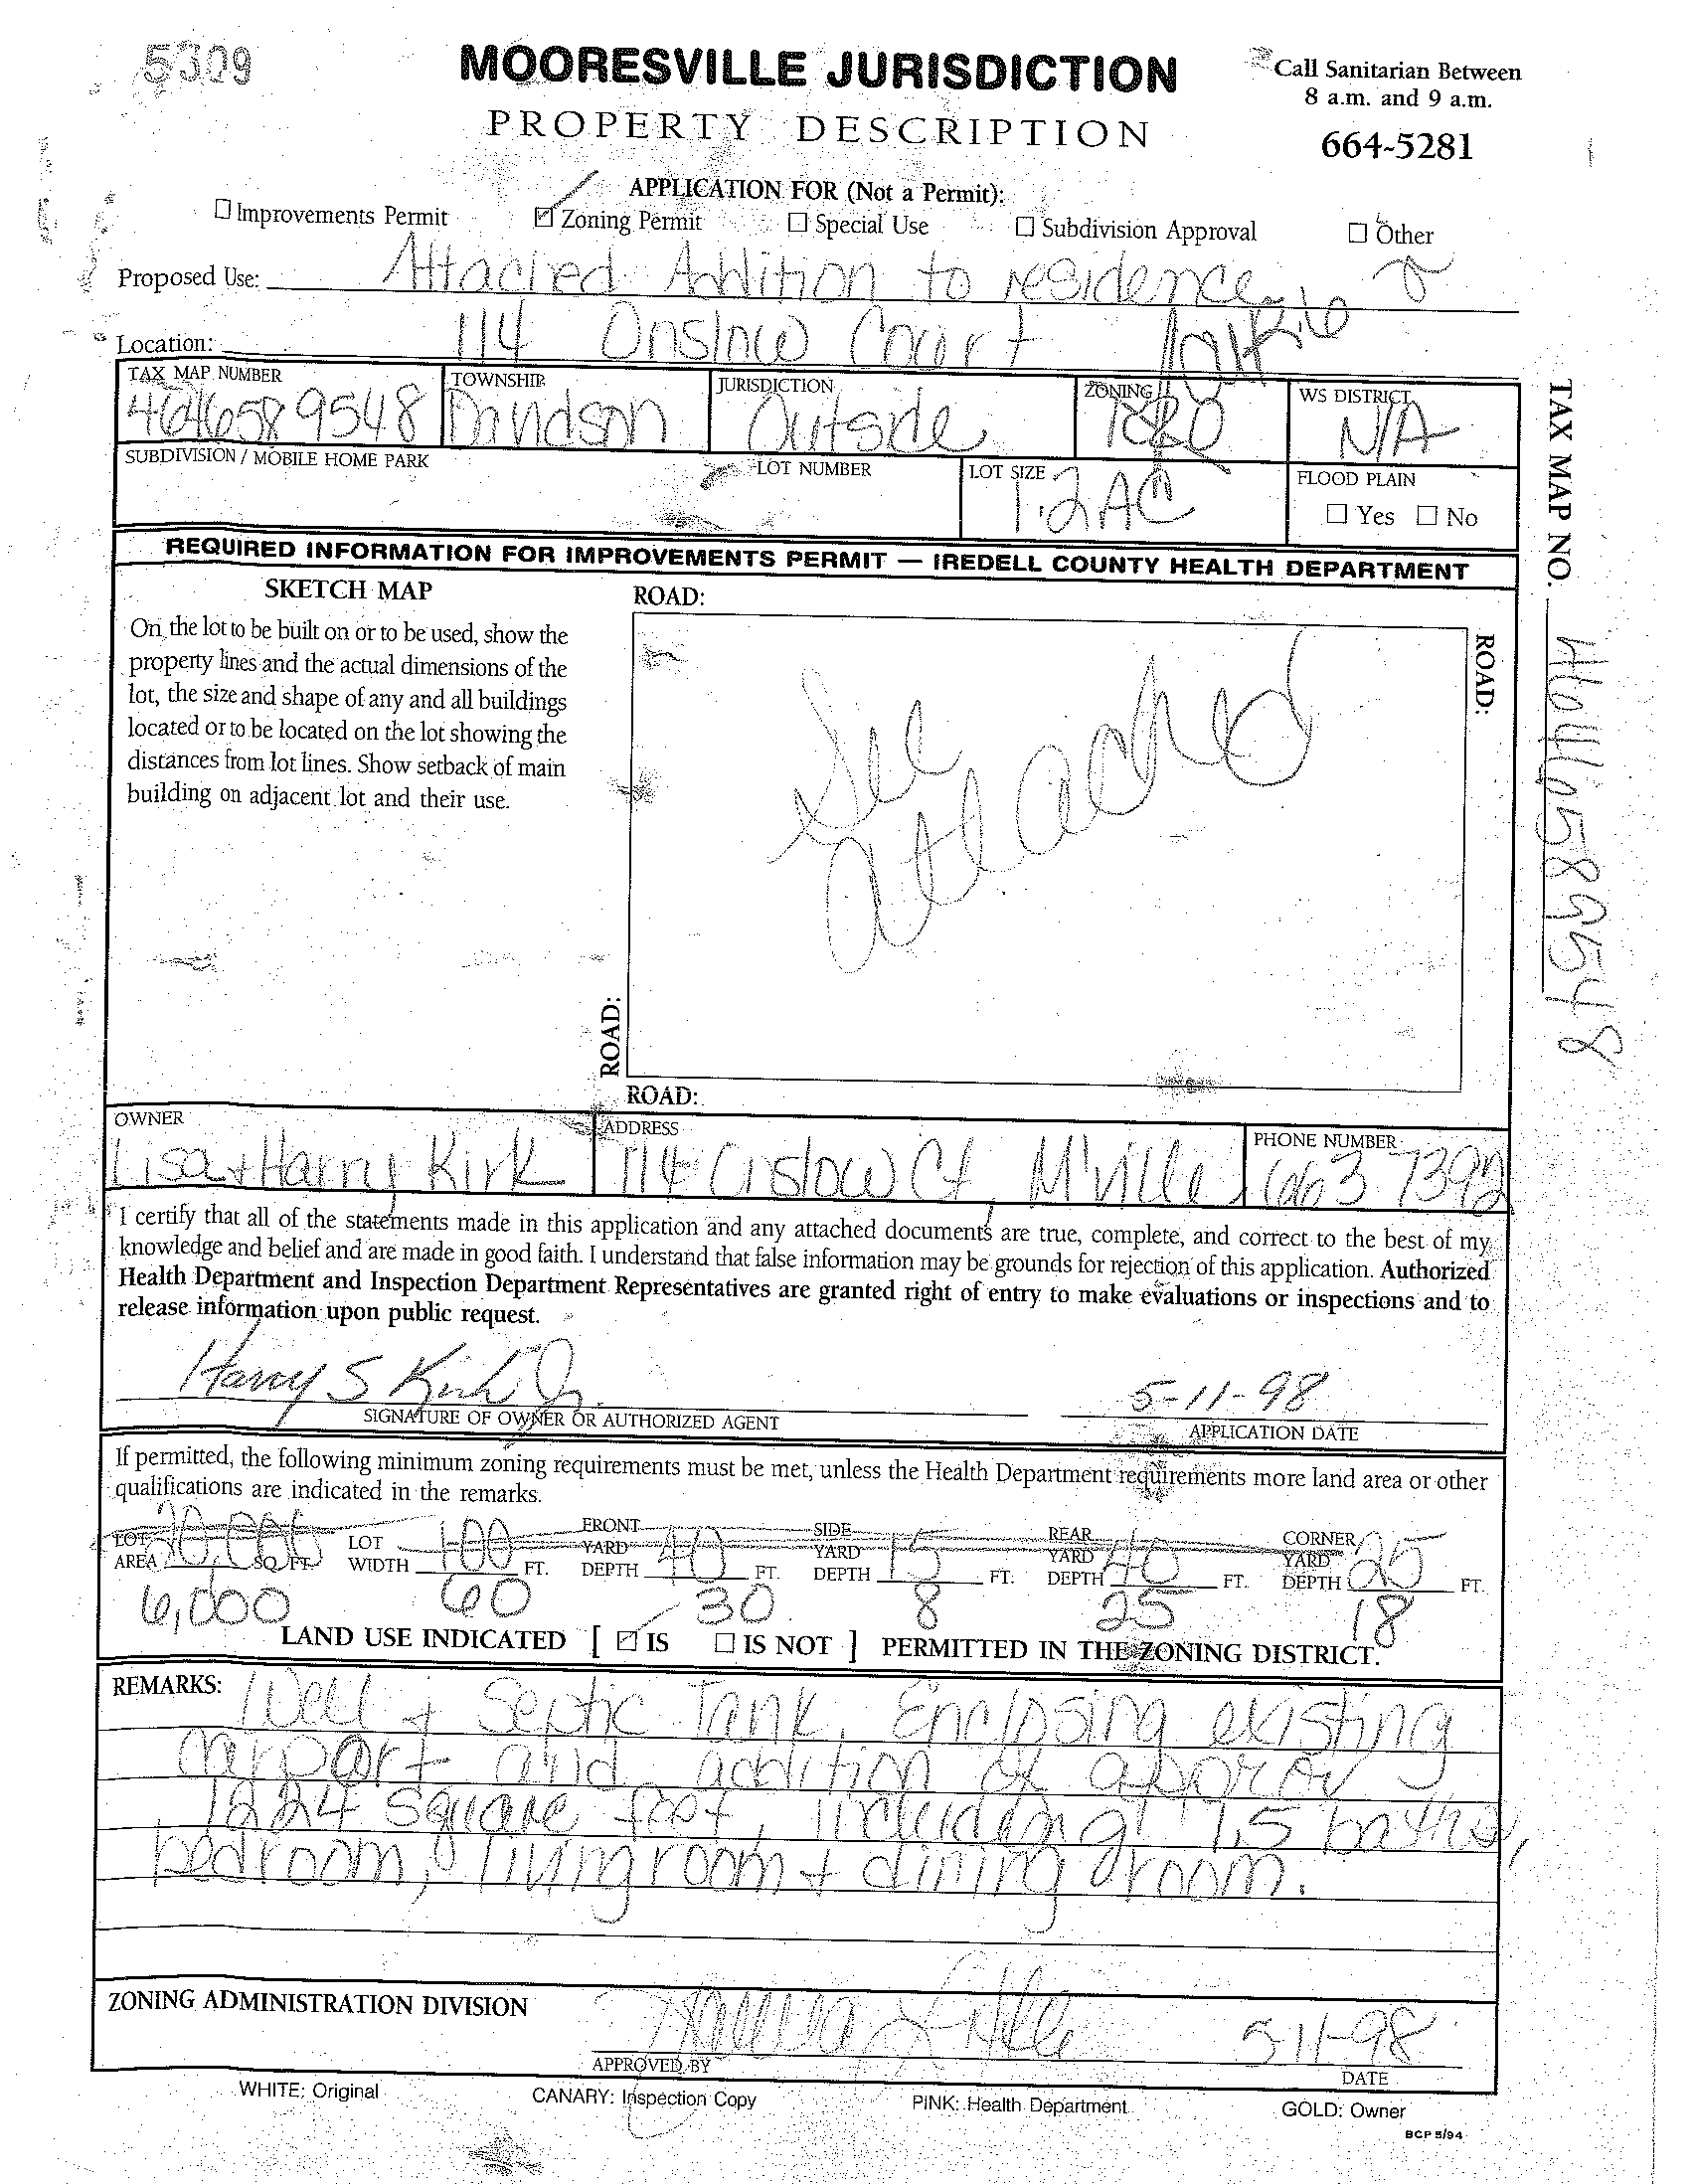 5309
MOORESVILLE JURISDICTION
PROPERTY DESCRIPTION
Call Sanitarian Between
8 a.m. and 9 a.m.
664-5281
APPLICATION FOR (Not a Permit):
☐ Improvements Permit ☑ Zoning Permit ☐ Special Use ☐ Subdivision Approval ☐ Other
Proposed Use: Attached Addition to residence
Location: 114 Onslow Court
TAX MAP NUMBER TOWNSHIP JURISDICTION ZONING WS DISTRICT
4646589548 Davidson Outside N/A
SUBDIVISION / MOBILE HOME PARK LOT NUMBER LOT SIZE FLOOD PLAIN
1.2 AC ☐ Yes ☐ No
TAX MAP NO. 4646589548
REQUIRED INFORMATION FOR IMPROVEMENTS PERMIT — IREDELL COUNTY HEALTH DEPARTMENT
SKETCH MAP
On the lot to be built on or to be used, show the
property lines and the actual dimensions of the
lot, the size and shape of any and all buildings
located or to be located on the lot showing the
distances from lot lines. Show setback of main
building on adjacent lot and their use.
ROAD:
ROAD:
See
attached
ROAD:
ROAD:
OWNER ADDRESS PHONE NUMBER
Lisa + Harry Kirk 114 Onslow Ct, M'ville 663 7392
I certify that all of the statements made in this application and any attached documents are true, complete, and correct to the best of my
knowledge and belief and are made in good faith. I understand that false information may be grounds for rejection of this application. Authorized
Health Department and Inspection Department Representatives are granted right of entry to make evaluations or inspections and to
release information upon public request.
Harry S Kirk Jr. 5-11-98
SIGNATURE OF OWNER OR AUTHORIZED AGENT APPLICATION DATE
If permitted, the following minimum zoning requirements must be met, unless the Health Department requirements more land area or other
qualifications are indicated in the remarks.
LOT AREA 20,000 SQ. FT. LOT WIDTH 100 FT. FRONT YARD DEPTH 40 FT. SIDE YARD DEPTH 15 FT. REAR YARD DEPTH 40 FT. CORNER YARD DEPTH 25 FT.
6,000 60 30 8 25 18
LAND USE INDICATED [ ☑ IS ☐ IS NOT ] PERMITTED IN THE ZONING DISTRICT.
REMARKS: Well + Septic Tank, Enclosing existing
carport and addition of approx
1224 square feet, including 1.5 baths,
bedroom, livingroom + dining room.
ZONING ADMINISTRATION DIVISION
5-11-98
APPROVED BY DATE
WHITE: Original CANARY: Inspection Copy PINK: Health Department GOLD: Owner
BCP 5/94